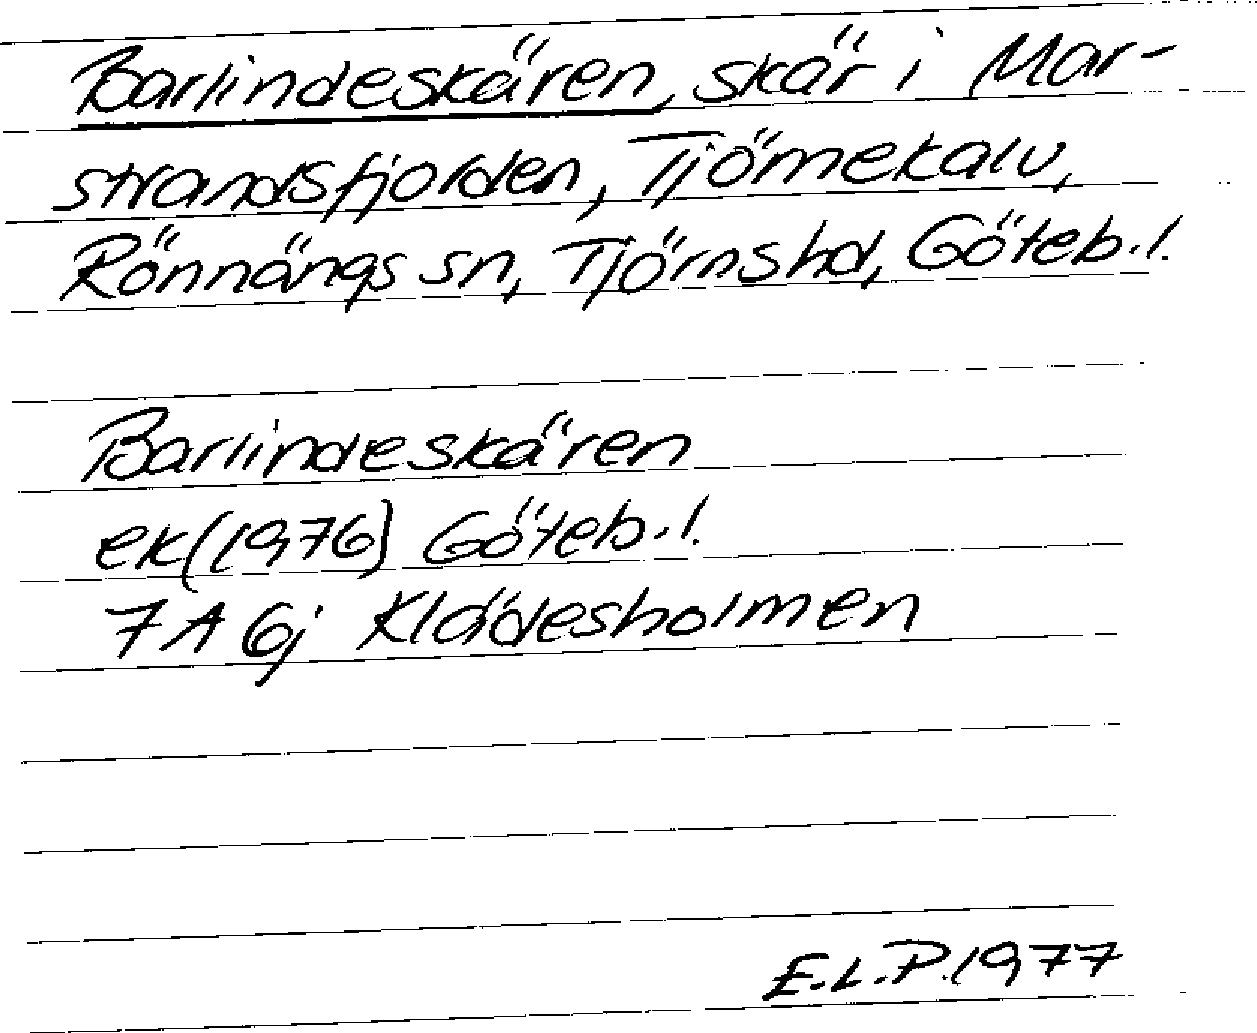 Barlindeskären, skär i Mar-
strandsfjorden, Tjörnekalv,
Rönnängs sn, Tjörns hd, Göteb.l.
Barlindeskären
ek(1976) Göteb.l.
7A 6j Klädesholmen
E.L.P.1977